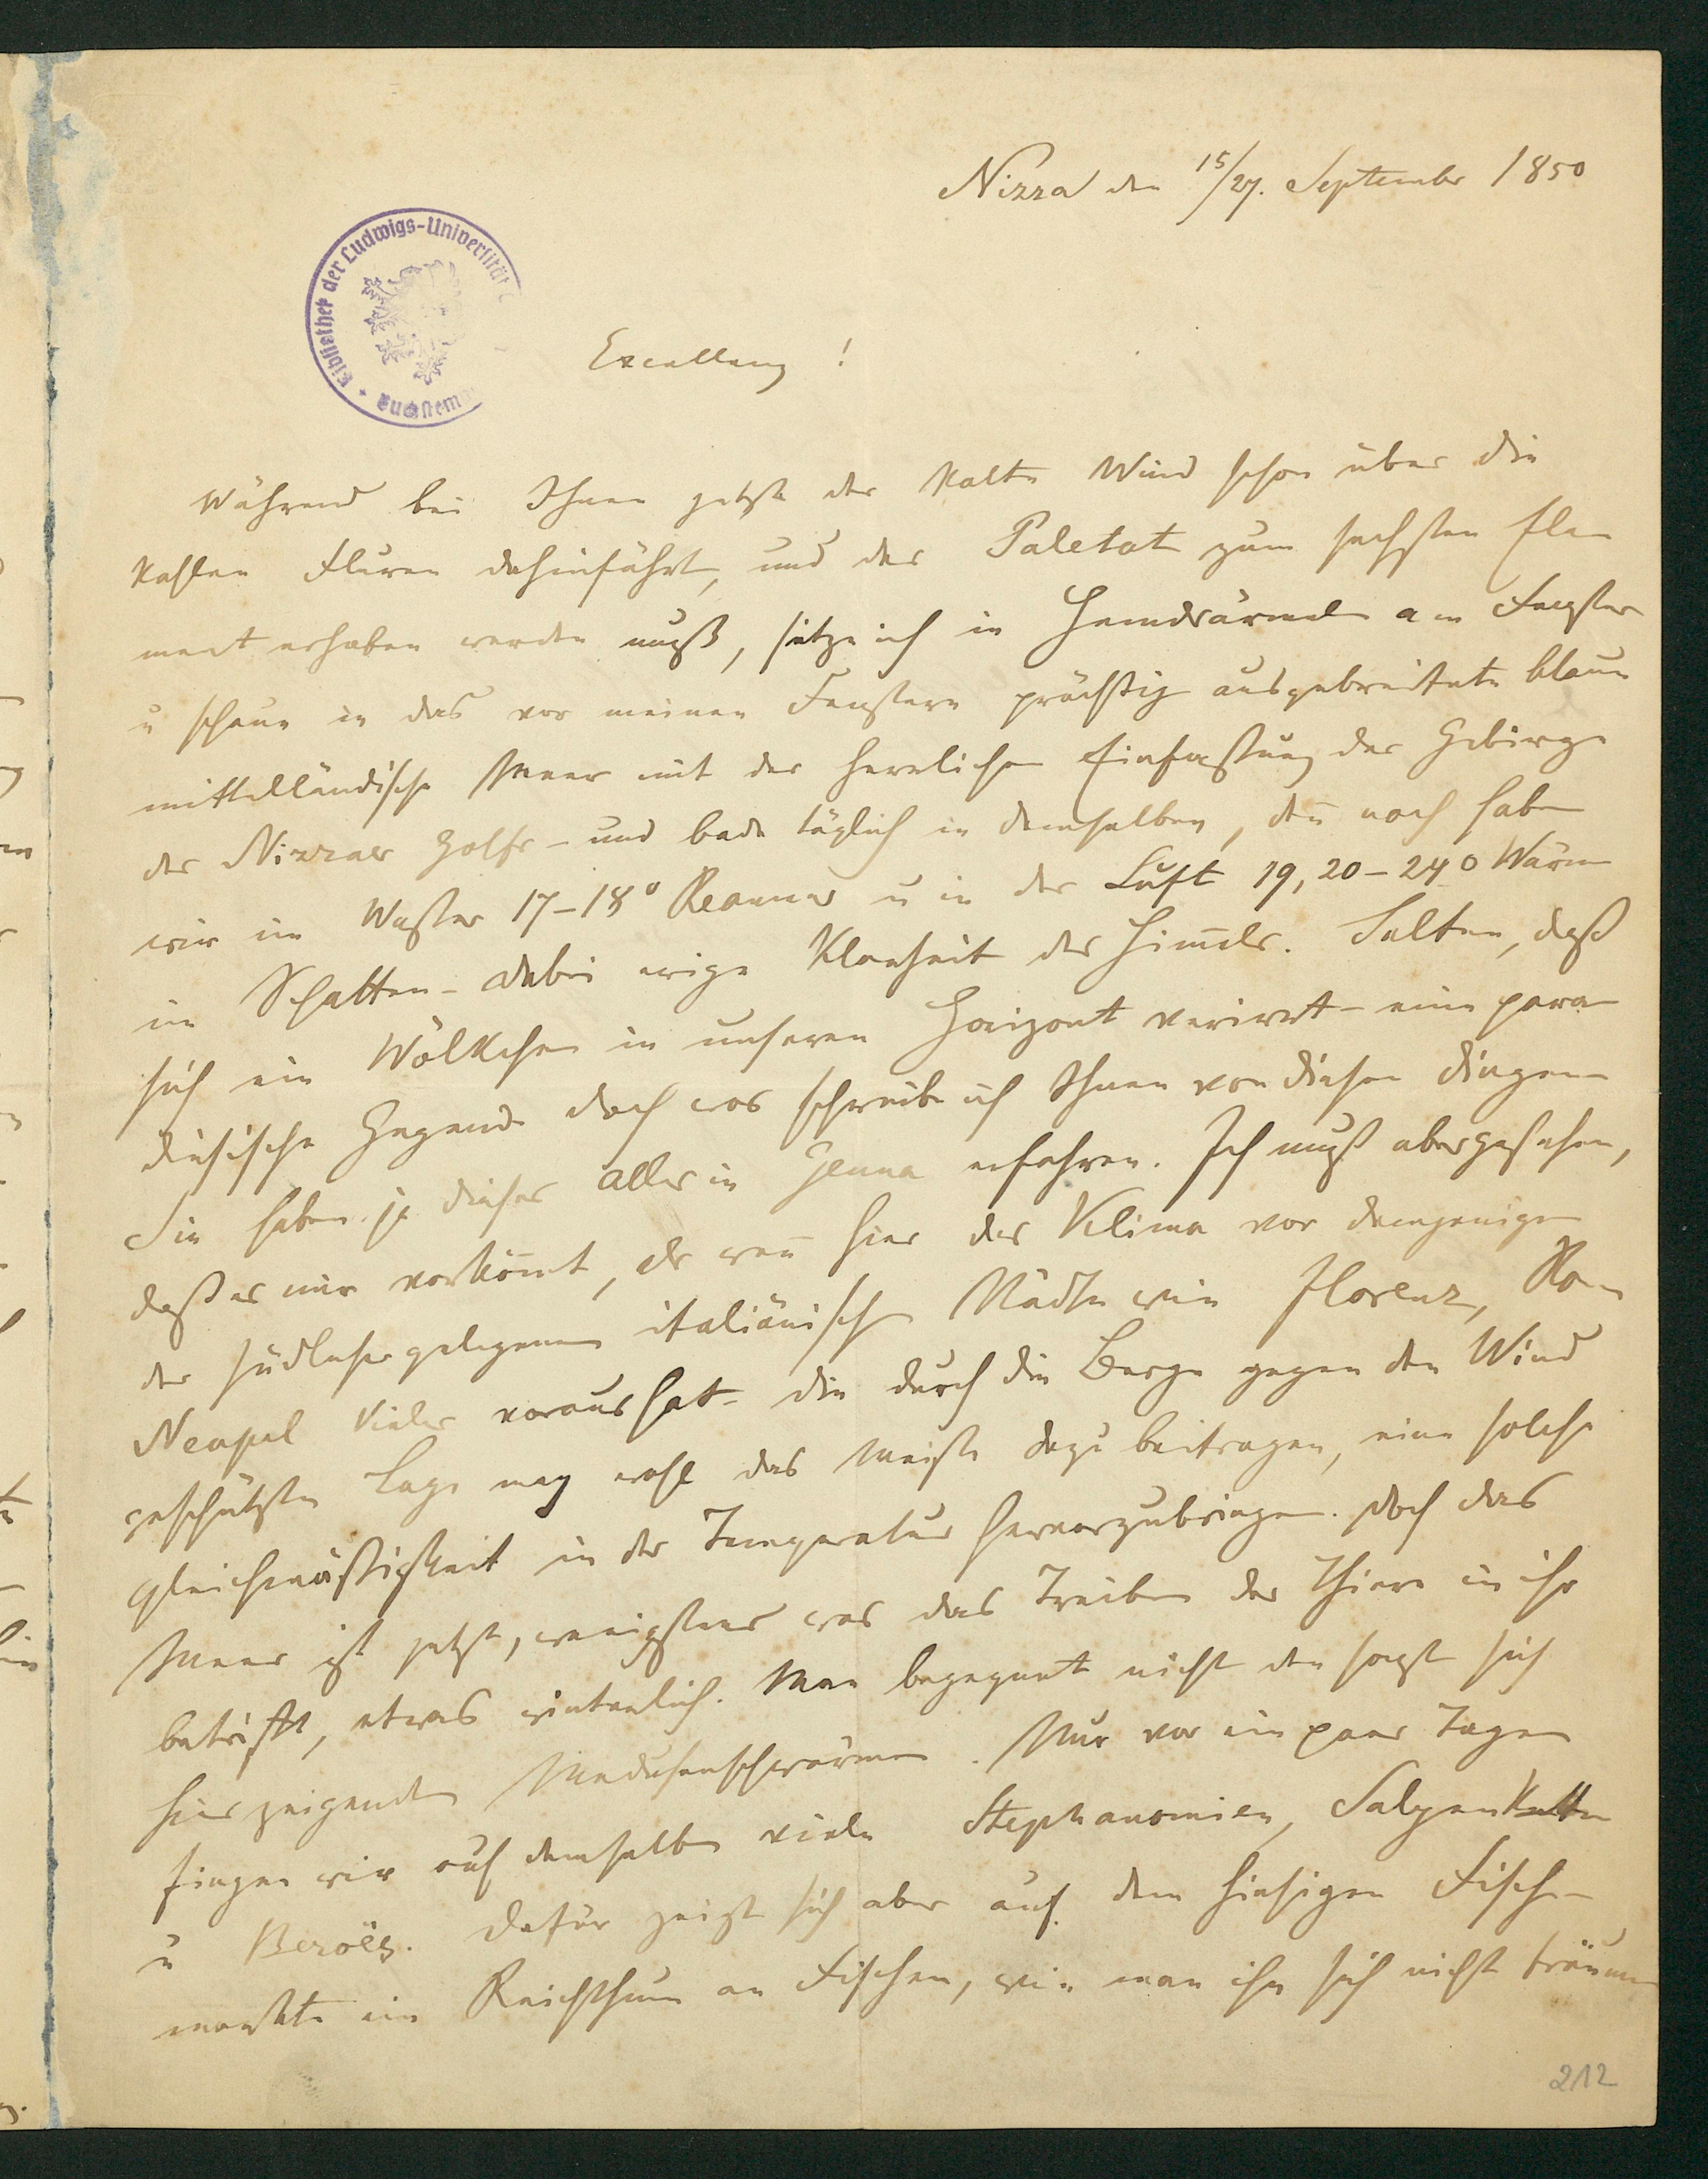 Nizza den 15/27. September 1850
Bibliothek der Ludwigs-Universität
Excellenz!
Während bei Ihnen jetzt der kalte Wind schon über die
kahlen Fluren dahinfährt, und der Paletot zum sechsten Ele-
ment erhoben werden muß, sitze ich in Hemdsärmeln am Fenster
u schaue in das vor meinen Fenstern prächtig ausgebreitete blaue
mittelländische Meer mit der herrlichen Einfassung der Gebirge
des Nizzaer Golfs – und bade täglich in demselben, den̄ noch haben
wir im Wasser 17–18° Reaumur u in der Luft 19, 20–24° Wärme
im Schatten – dabei ewige Klarheit des Him̄els. Selten, daß
sich ein Wölkchen in unseren Horizont verirrt – eine para-
diesische Gegend – doch was schreibe ich Ihnen von diesen Dingen
Sie haben ja dieses alles in Genua erfahren. Ich muß aber gestehen,
daß es mir vorkom̄t, als wen̄ hier das Klima vor demjenigen
der südlicher gelegenen italiänischen Städte wie Florenz, Rom
Neapel Vieles voraus hat – die durch die Berge gegen den Wind
geschützte Lage mag wohl das Meiste dazu beitragen, eine solche
Gleichmäßigkeit in der Temperatur hervorzubringen. Doch das
Meer ist jetzt, wenigstens was das Treiben der Thiere in ihr
betrifft, etwas winterlich. Man begegnet nicht den sonst sich
hier zeigenden Medusenschwärmen. Nur vor ein paar Tagen
fingen wir auf demselben viele Stephanomien, Salpenketten
u Beroës. Dafür zeigt sich aber auf dem hiesigen Fisch-
markte ein Reichthum an Fischen, wie man ihn sich nicht träumen
212